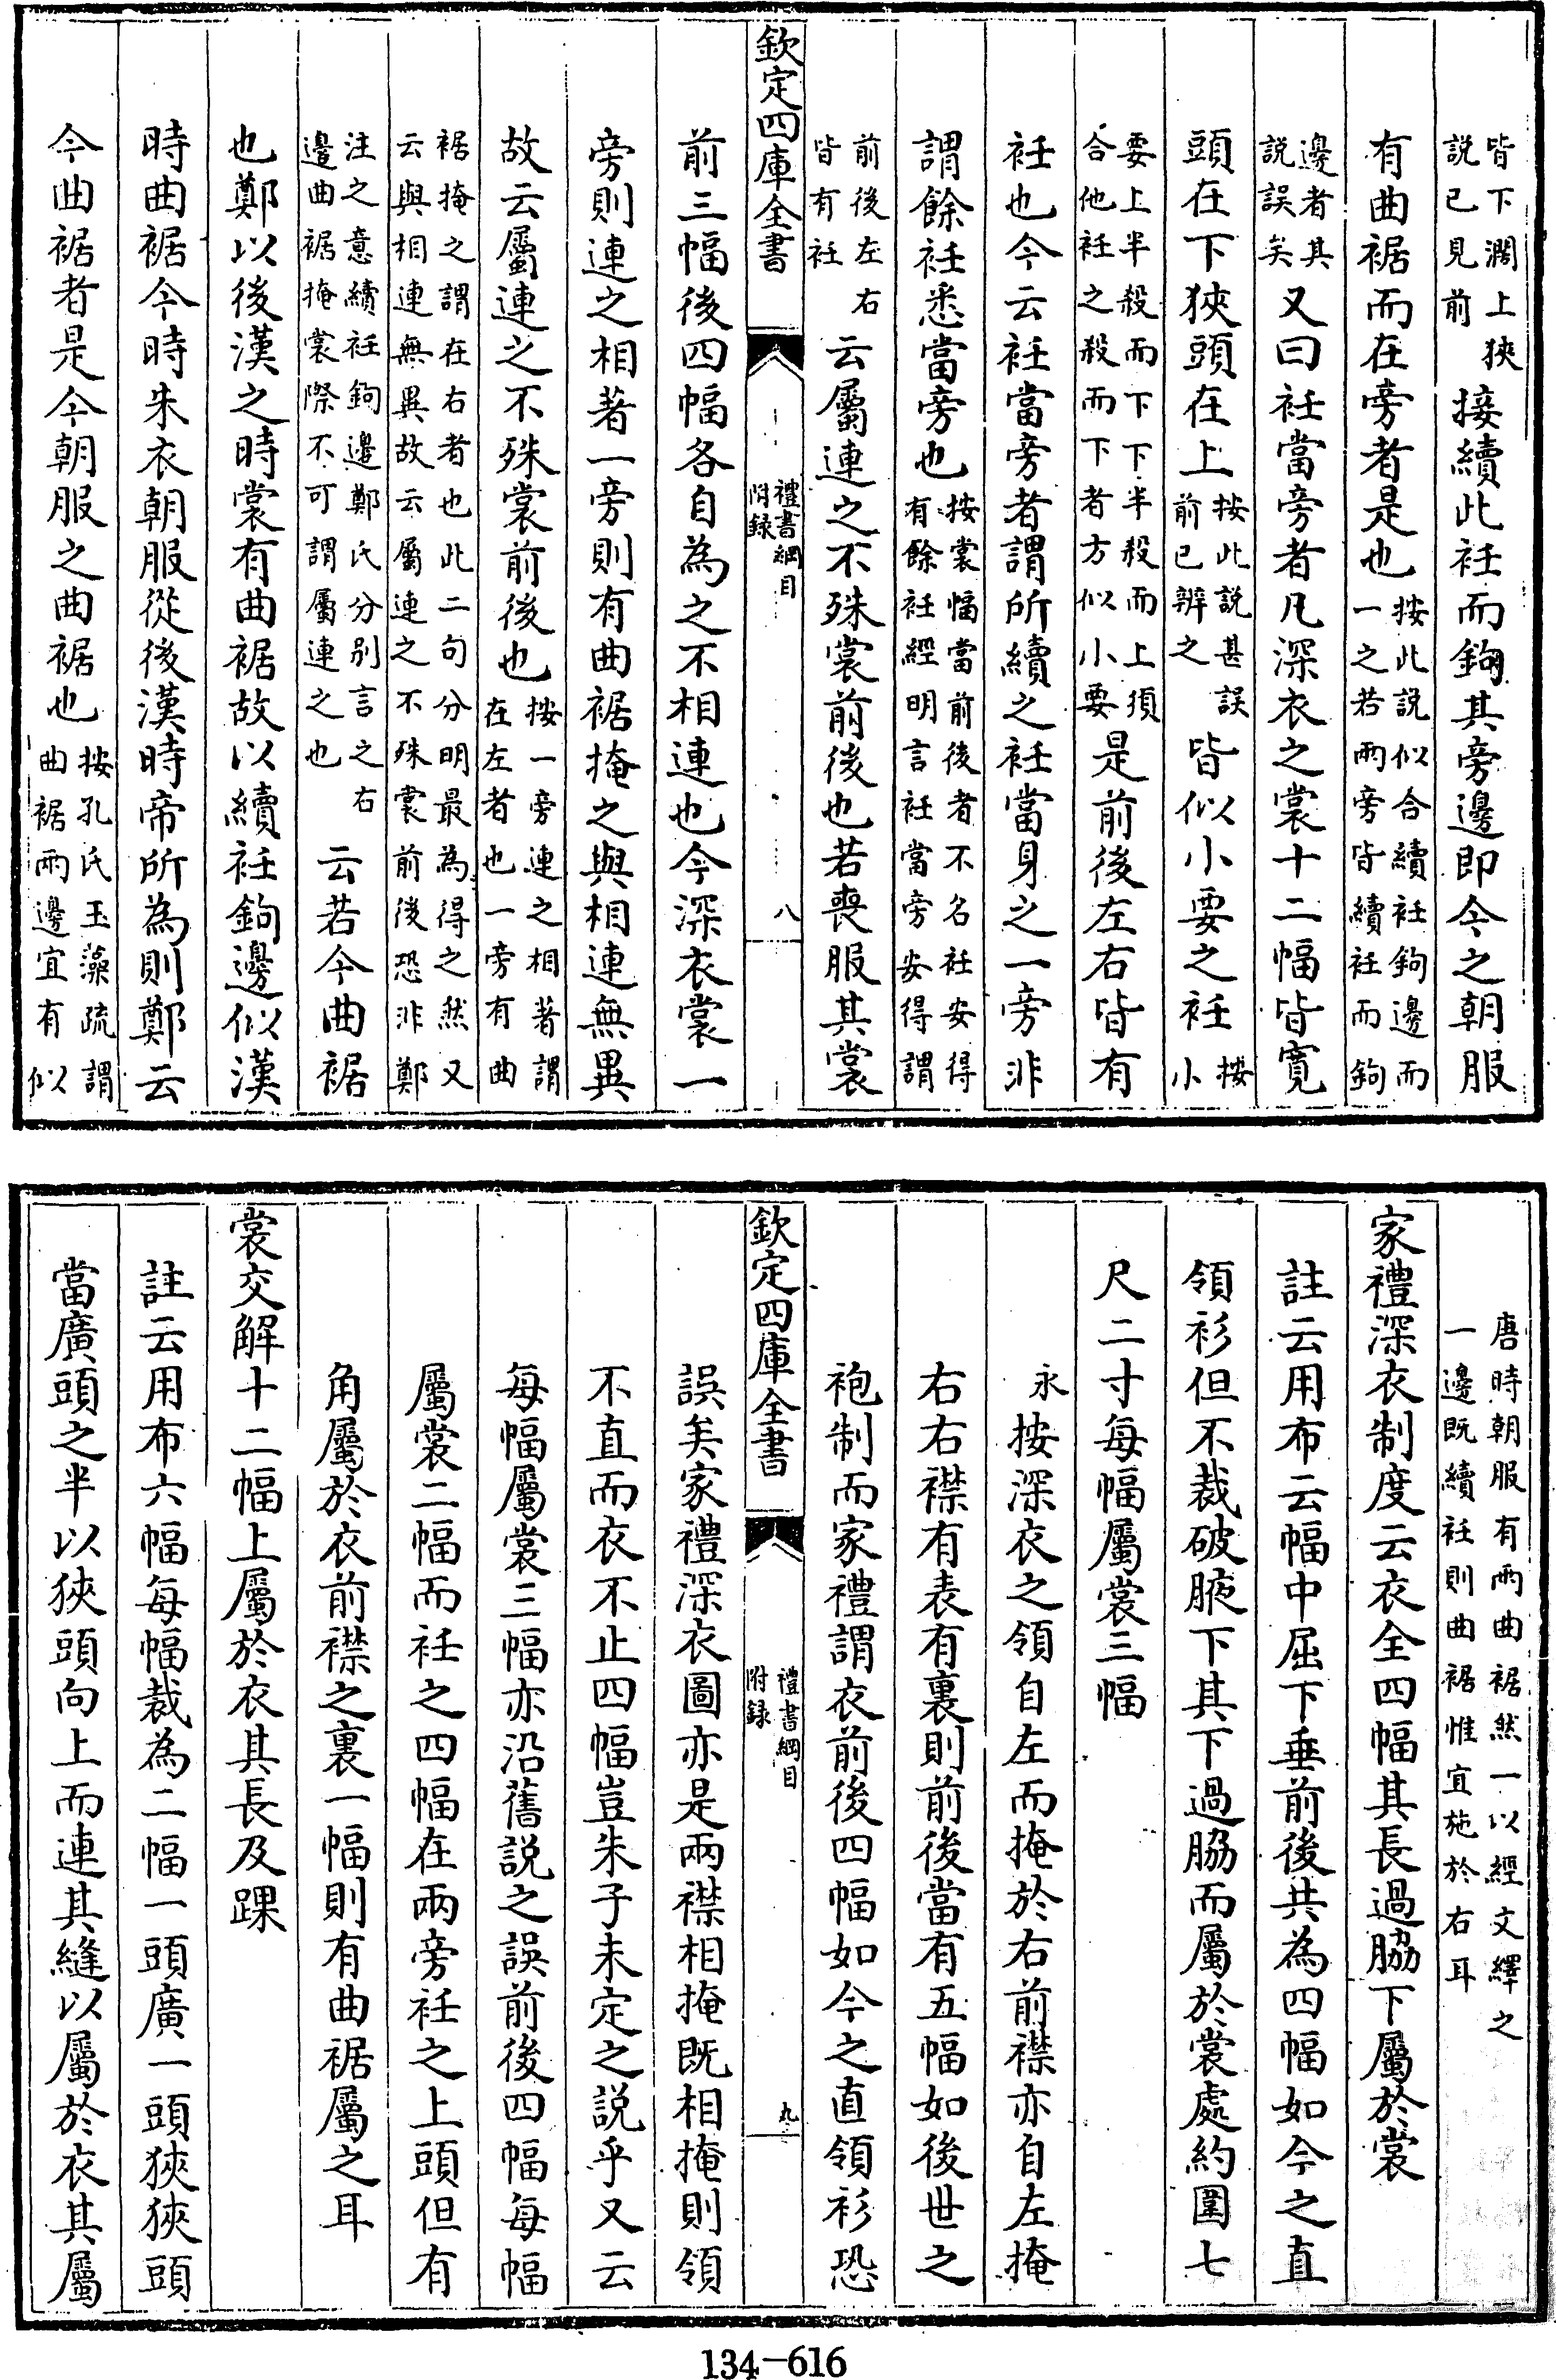 皆下濶上狹
説已見前
接續此衽而鉤其旁邊即今之朝服
有曲裾而在旁者是也
按此説似合續衽鉤邊而
一之若兩旁皆續衽而鉤
邊者其
説誤矣
又曰衽當旁者凡深衣之裳十二幅皆寛
頭在下狹頭在上
按此説甚誤
前已辨之
皆似小要之衽
按
小
要上半殺而下下半殺而上須
合他衽之殺而下者方似小要
是前後左右皆有
衽也今云衽當旁者謂所續之衽當身之一旁非
謂餘衽悉當旁也
按裳幅當前後者不名衽安得
有餘衽經明言衽當旁安得謂
前後左右
皆有衽
云屬連之不殊裳前後也若喪服其裳
欽定四庫全書
禮書綱目
附録
八
前三幅後四幅各自為之不相連也今深衣裳一
旁則連之相著一旁則有曲裾掩之與相連無異
故云屬連之不殊裳前後也
按一旁連之相著謂
在左者也一旁有曲
裾掩之謂在右者也此二句分明最為得之然又
云與相連無異故云屬連之不殊裳前後恐非鄭
注之意續衽鉤邊鄭氏分别言之右
邊曲裾掩裳際不可謂屬連之也
云若今曲裾
也鄭以後漢之時裳有曲裾故以續衽鉤邊似漢
時曲裾今時朱衣朝服從後漢時帝所為則鄭云
今曲裾者是今朝服之曲裾也
按孔氏玉藻疏謂
曲裾兩邊宜有似
唐時朝服有兩曲裾然一以經文繹之
一邊既續衽則曲裾惟宜施於右耳
家禮深衣制度云衣全四幅其長過脇下屬於裳
註云用布云幅中屈下垂前後共為四幅如今之直
領衫但不裁破腋下其下過脇而屬於裳處約圍七
尺二寸每幅屬裳三幅
永按深衣之領自左而掩於右前襟亦自左掩
右右襟有表有裏則前後當有五幅如後世之
袍制而家禮謂衣前後四幅如今之直領衫恐
欽定四庫全書
禮書綱目
附録
九
誤矣家禮深衣圖亦是兩襟相掩既相掩則領
不直而衣不止四幅豈朱子未定之説乎又云
每幅屬裳三幅亦沿舊説之誤前後四幅每幅
屬裳二幅而衽之四幅在兩旁衽之上頭但有
角屬於衣前襟之裏一幅則有曲裾屬之耳
裳交解十二幅上屬於衣其長及踝
註云用布六幅每幅裁為二幅一頭廣一頭狹狹頭
當廣頭之半以狹頭向上而連其縫以屬於衣其屬
134-616